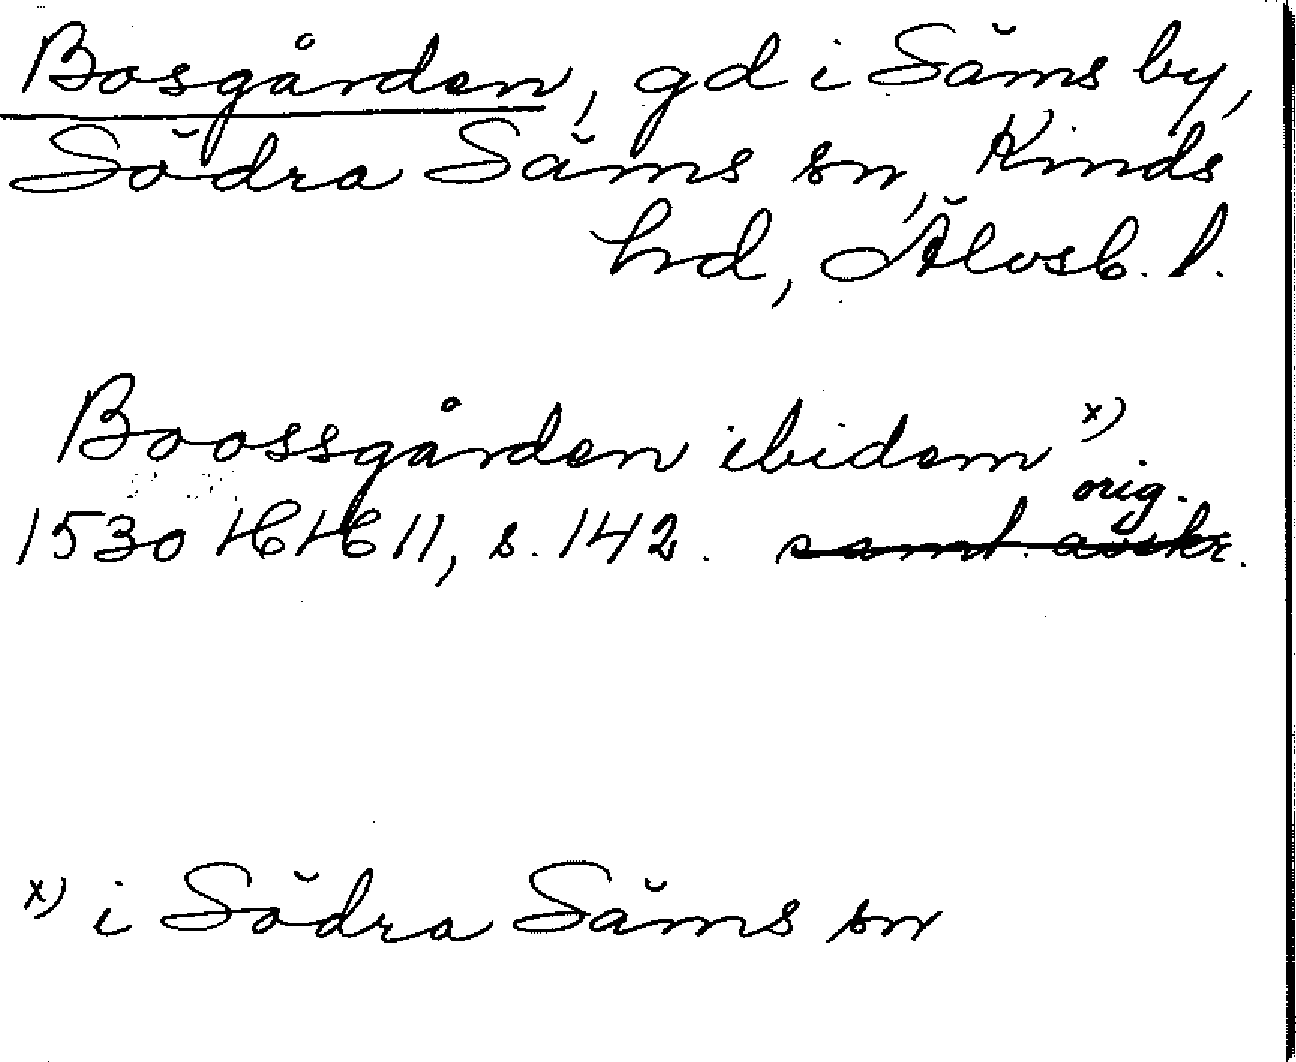 Bosgården, gd i Säms by,
Södra Säms sn, Kinds
hd, Älvsb. l.
Boossgården ibidem x)
orig.
1530 HH 11, s. 142. samt. avskr.
x) i Södra Säms sn